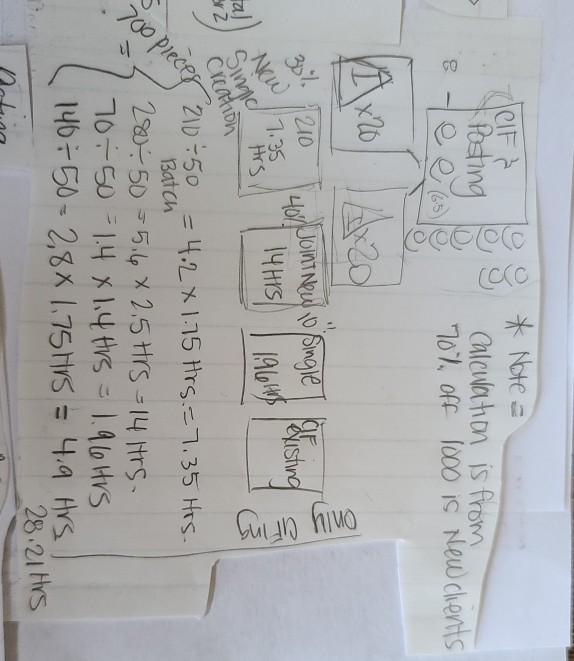 * Note =
Calculation is from
70% off 1000 is New clients
CIF &
Posting
8 -
(65)
I x20
I x20
30%
New
Single
Creation
210
7.35
Hrs
40% Joint New
14 Hrs
10% Single
1.96 Hrs
CIF
existing
only
CIF
700 pieces
=
210 ÷ 50 = 4.2 x 1.75 Hrs. = 7.35 Hrs.
Batch
280 ÷ 50 = 5.6 x 2.5 Hrs = 14 Hrs.
70 ÷ 50 = 1.4 x 1.4 Hrs = 1.96 Hrs
140 ÷ 50 = 2.8 x 1.75 Hrs = 4.9 Hrs
28.21 Hrs